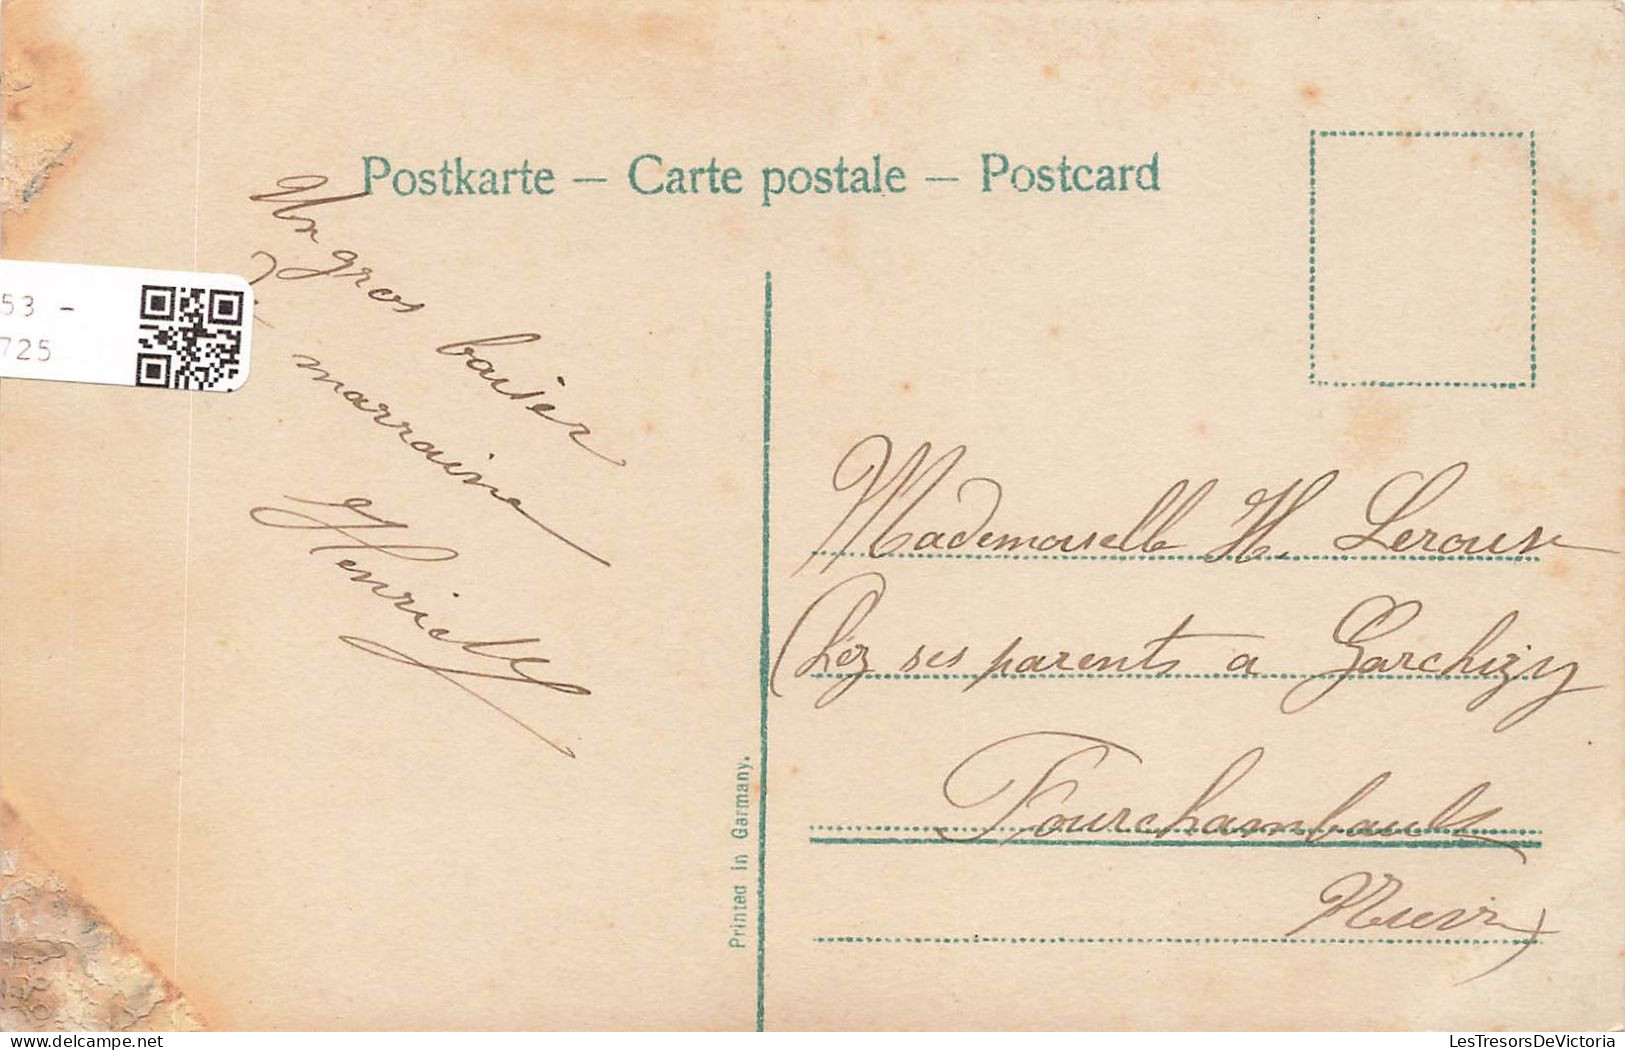 Postkarte — Carte postale — Postcard
Un gros baiser
marraine
Henriette
53 -
725
Printed in Germany.
Mademoiselle H. Leroux
Chez ses parents a Garchizy
Fourchambault
Nièvre
LesTresorsDeVictoria